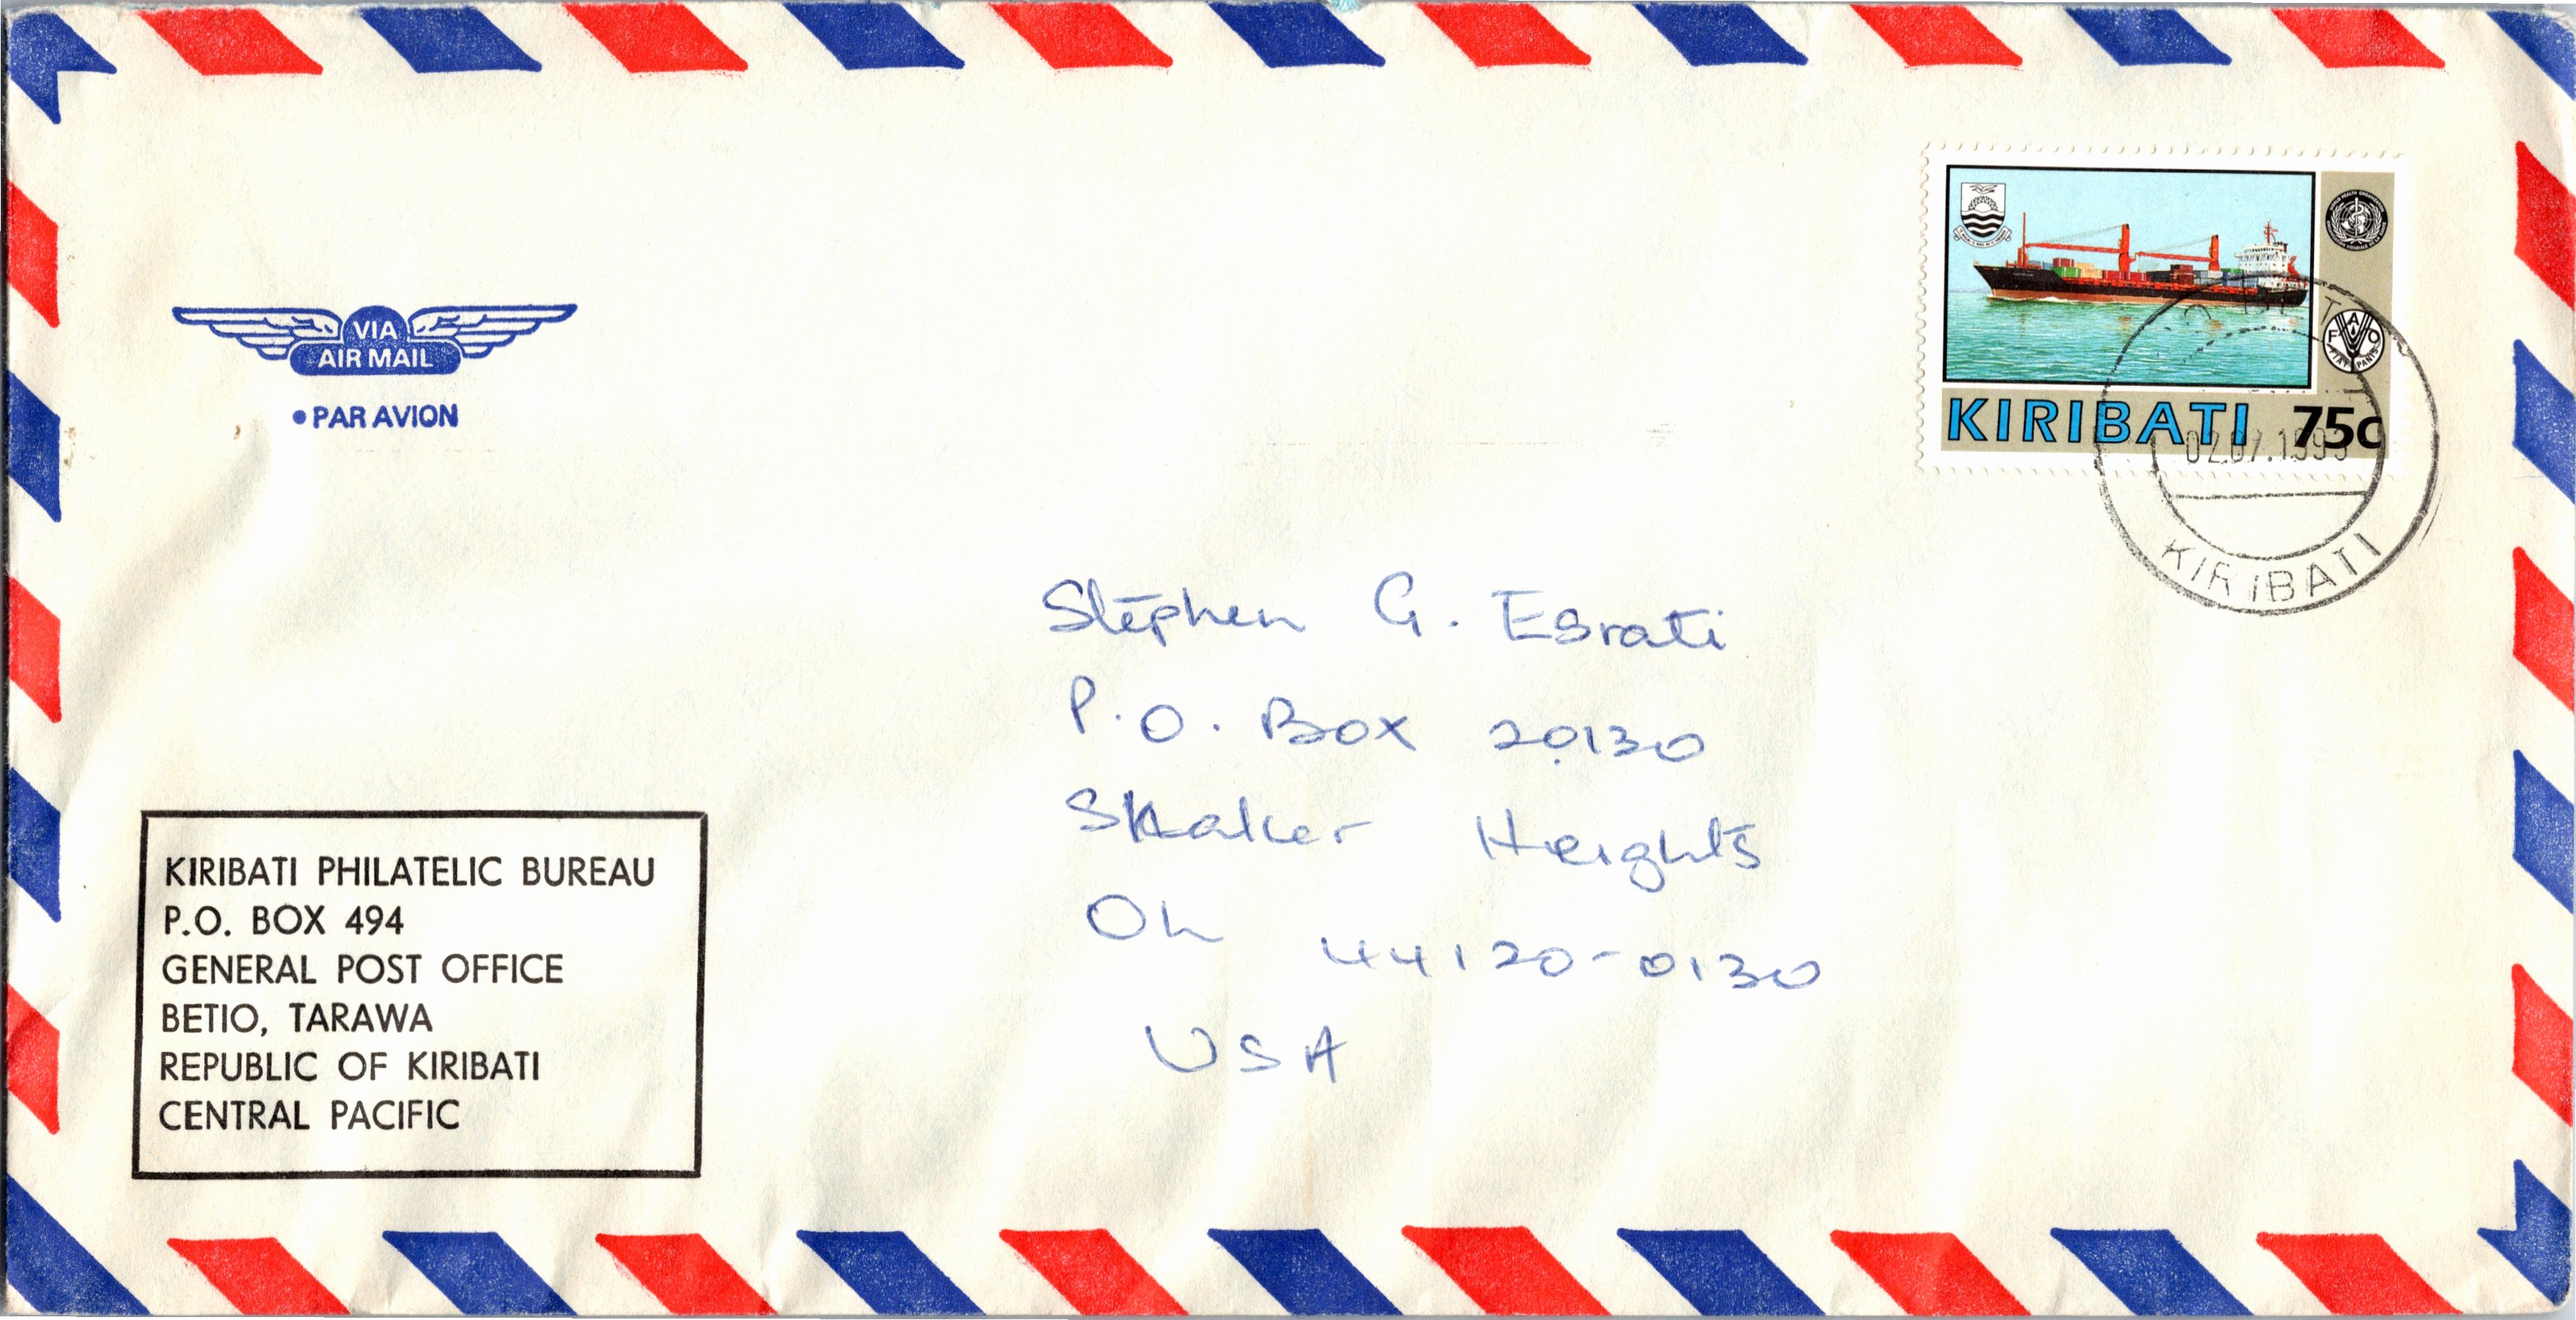 VIA
AIR MAIL
PAR AVION
KIRIBATI 75c
FAO
FIAT PANIS
02.07.1993
KIRIBATI
Stephen G. Esrati
P.O. Box 20130
Shaker Heights
Oh 44120-0130
USA
KIRIBATI PHILATELIC BUREAU
P.O. BOX 494
GENERAL POST OFFICE
BETIO, TARAWA
REPUBLIC OF KIRIBATI
CENTRAL PACIFIC